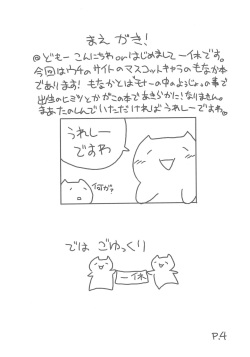 まえがき!
@どもー こんにちわ or はじめまして 一休です。
今回はウチのサイトのマスコットキャラのもなか本
であります! もなかとはモナーの中のようじょの事で
出生のヒミツとかがこの本であきらかになりません。
まあたのしんでいただければうれしーですわ。
うれしー
ですわ
何が?
では ごゆっくり
一休
P.4